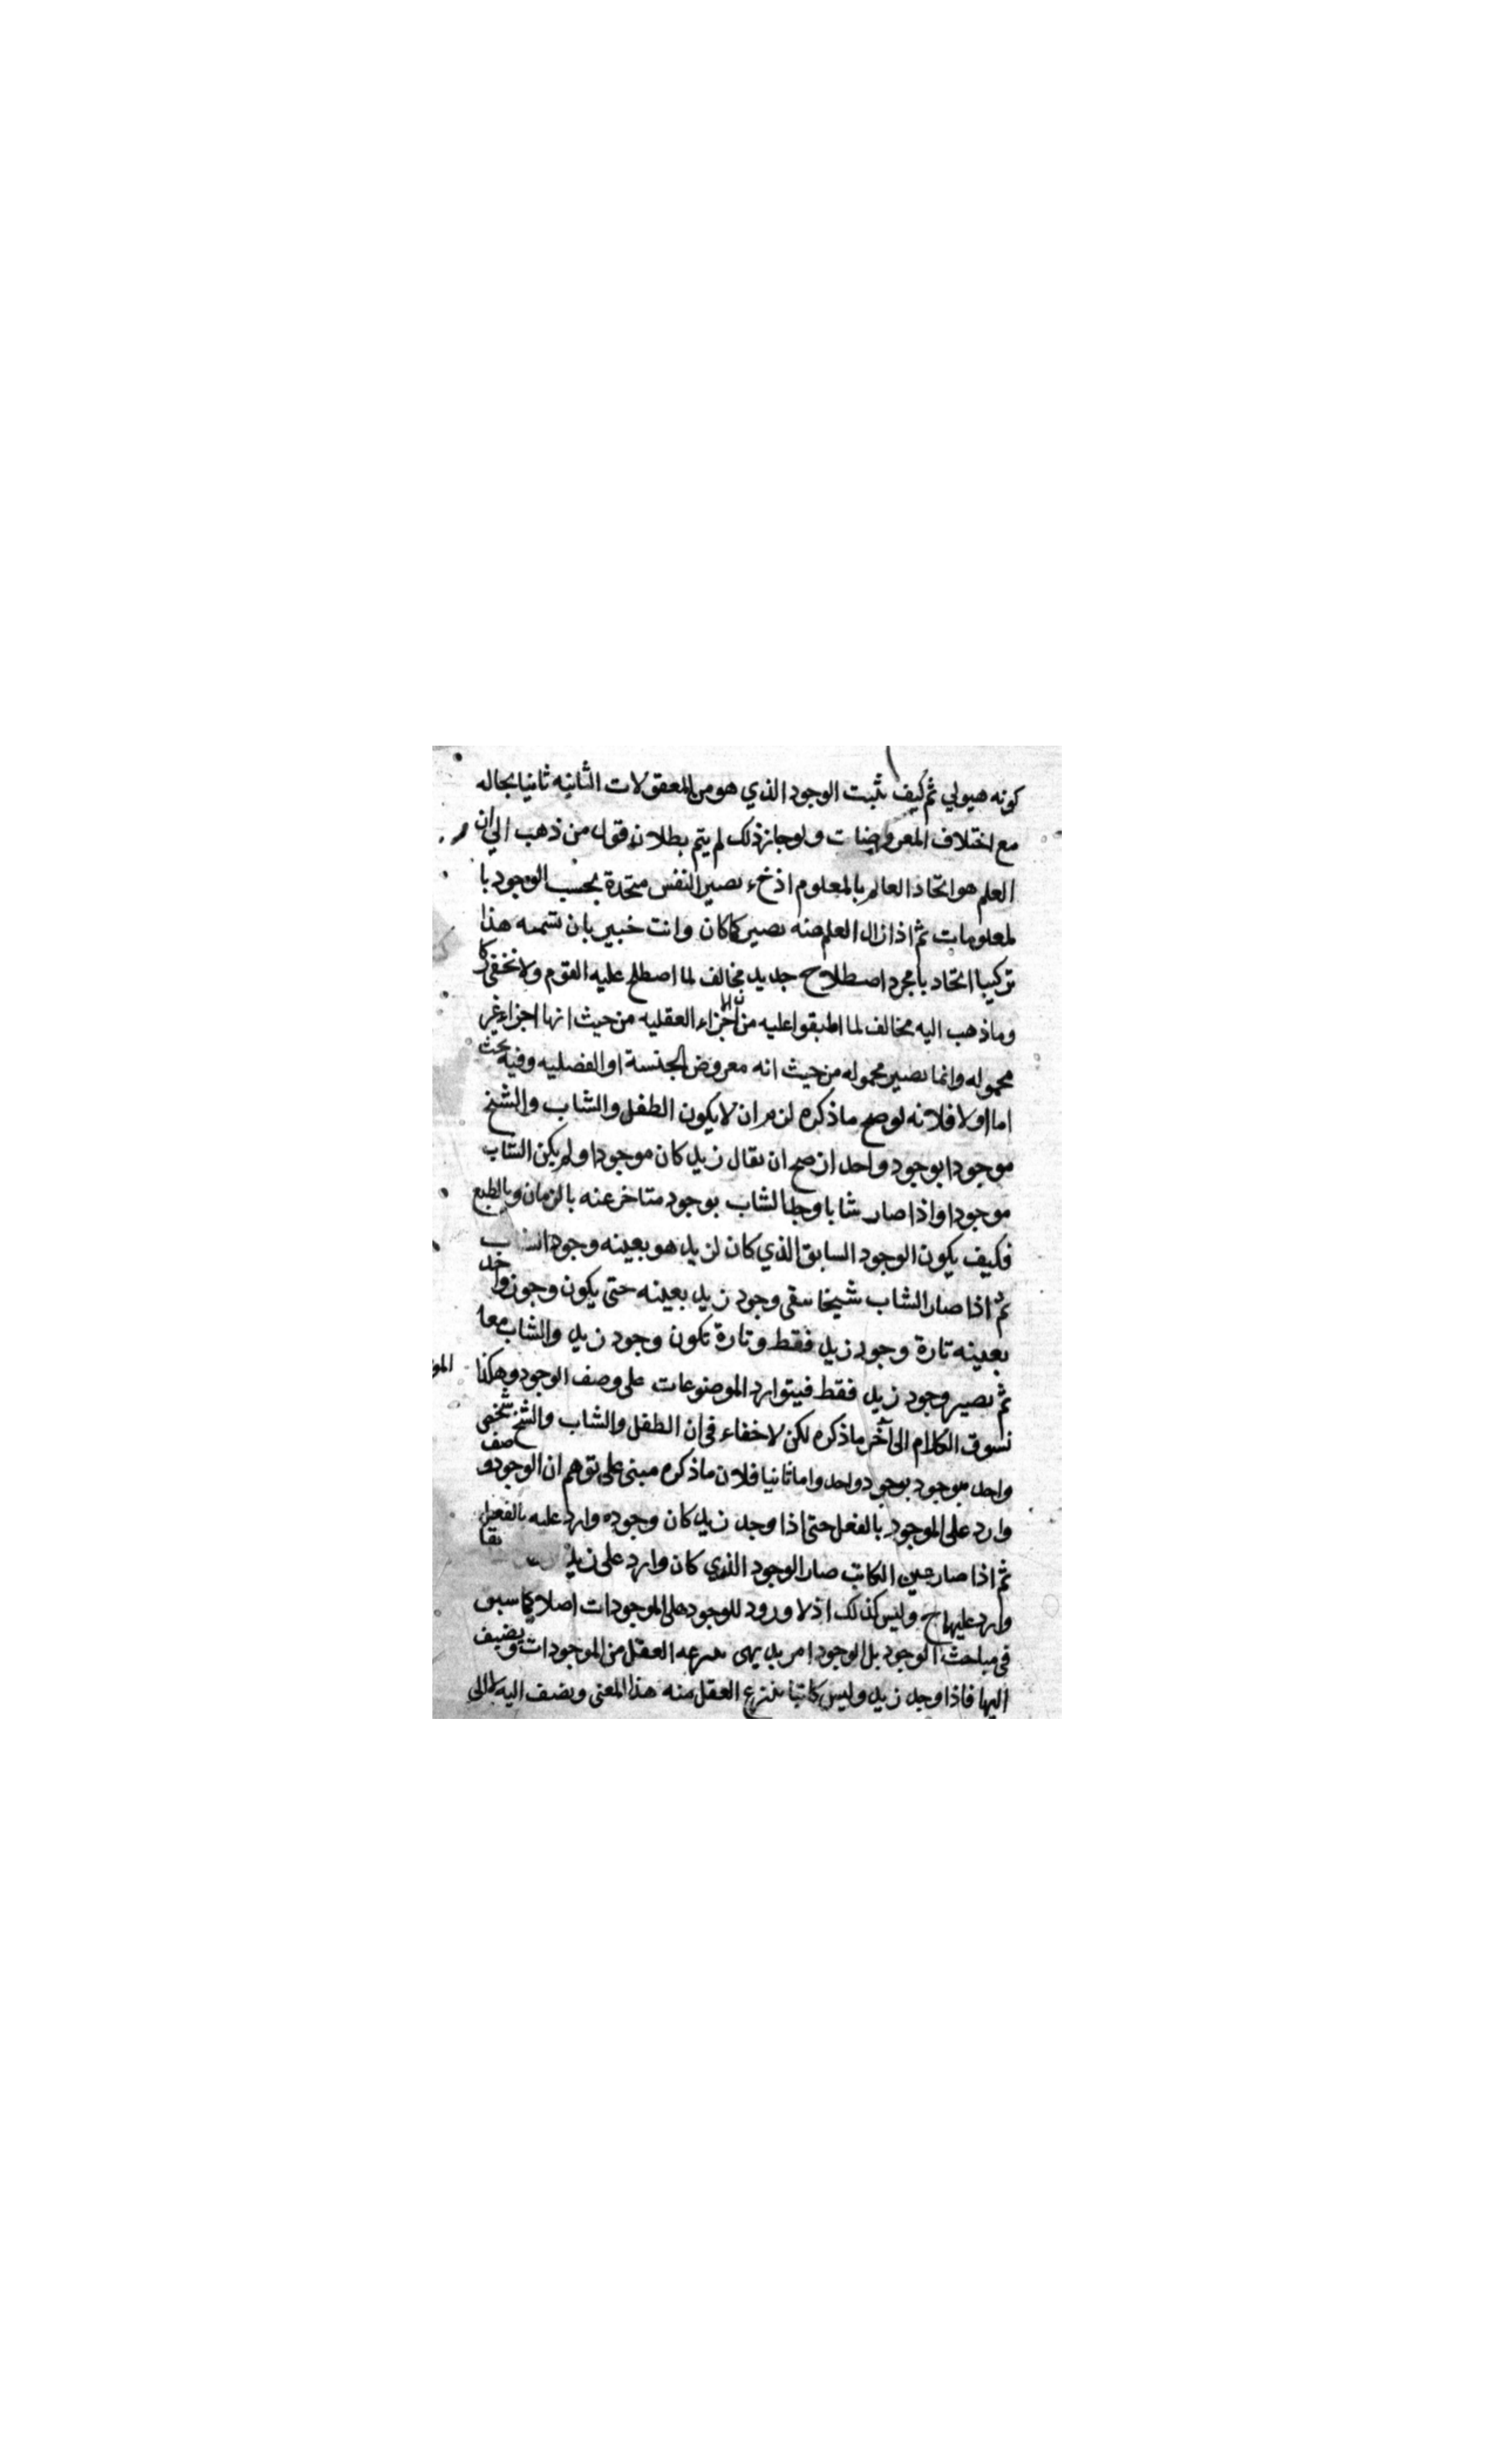 كونه هيولي ثم كيف يثبت الوجود الذي هو من المعقولات الثانيه ثانيا بحاله
مع اختلاف المعروضات ولو جاز ذلك لم يتم بطلان قول من ذهب الي ان
العلم هو اتحاد العالم بالمعلوم اذ ح تصير النفس متحدة بحسب الوجود با
لمعلومات ثم اذا زال العلم عنه تصير كما كان وانت خبير بان تسميه هذا
تركيبا اتحاديا مجرد اصطلاح جديد مخالف لما اصطلح عليه القوم ولا يخفى
وما ذهب اليه مخالف لما اطبقوا عليه من ان الاجزاء العقليه من حيث انها اجزاء غير
محموله وانما تصير محموله من حيث انه معروض الجنسية او الفصليه وفيه بحث
اما اولا فلانه لو صح ما ذكره لزم ان لا يكون الطفل والشاب والشيخ
موجودا بوجود واحد اذ صح ان يقال زيد كان موجودا ولم يكن الشاب
موجودا واذا صار شابا وجد الشاب بوجود متاخر عنه بالزمان وبالطبع
فكيف يكون الوجود السابق الذي كان لزيد هو بعينه وجود الشاب
ثم اذا صار الشاب شيخا بقى وجود زيد بعينه حتى يكون وجود واحد
بعينه تارة وجود زيد فقط وتارة تكون وجود زيد والشاب معا
ثم يصير وجود زيد فقط فيتوارد الموضوعات على وصف الوجود وهكذا
نسوق الكلام الى آخر ما ذكره لكن لا خفاء في ان الطفل والشاب والشيخ شخص
واحد موجود بوجود واحد واما ثانيا فلان ما ذكره مبنى على توهم ان الوجود وصف
وارد على الموجود بالفعل حتى اذا وجد زيد كان وجوده وارد عليه بالفعل
ثم اذا صار عين الكاتب صار الوجود الذي كان وارد على زيد
وارد عليهما ح وليس كذلك اذ لا ورود للوجود على الموجودات اصلا كما سبق
في مباحث الوجود بل الوجود امر بديهى ينتزعه العقل من الموجودات ويضيف
اليها فاذا وجد زيد وليس كاتبا ينتزع العقل منه هذا المعنى ويضيف اليه لا الي